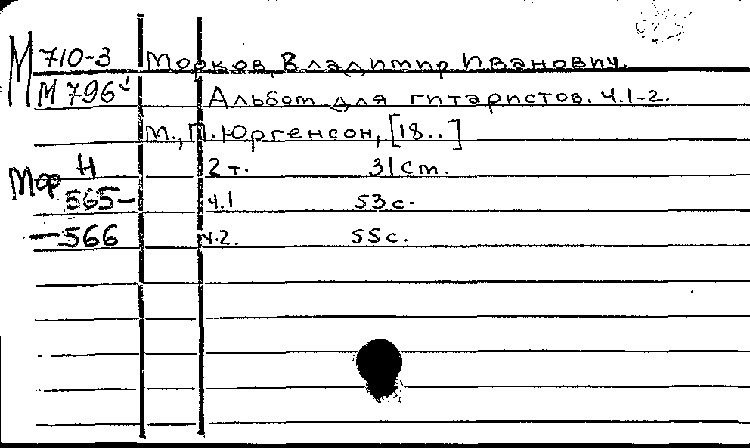 М 710-3 Морков, Владимир Иванович.
М 796 Альбом для гитаристов. ч.1-2.
М., П. Юргенсон, [18..]
Н 2 т. 31 см.
Мор 565- ч.1 53 с.
-566 ч.2. 55 с.